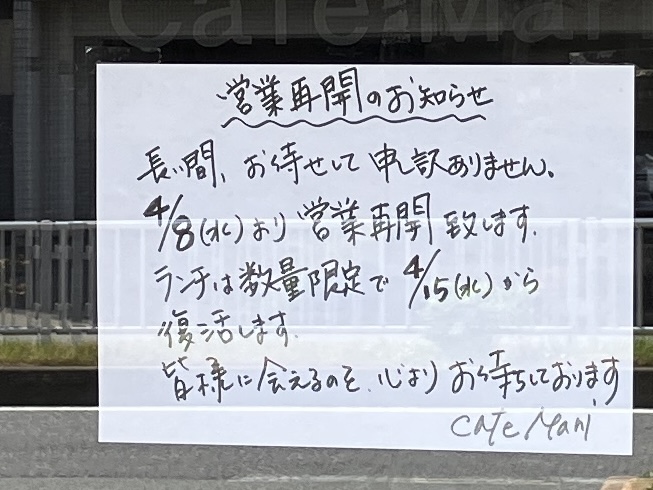 Cafe Mari
営業再開のお知らせ
長い間、お待せして申し訳ありません。
4/8(水)より営業再開致します.
ランチは数量限定で4/15(水)から
復活します.
皆様に会えるのを、心よりお待ちしております
Cafe Mari